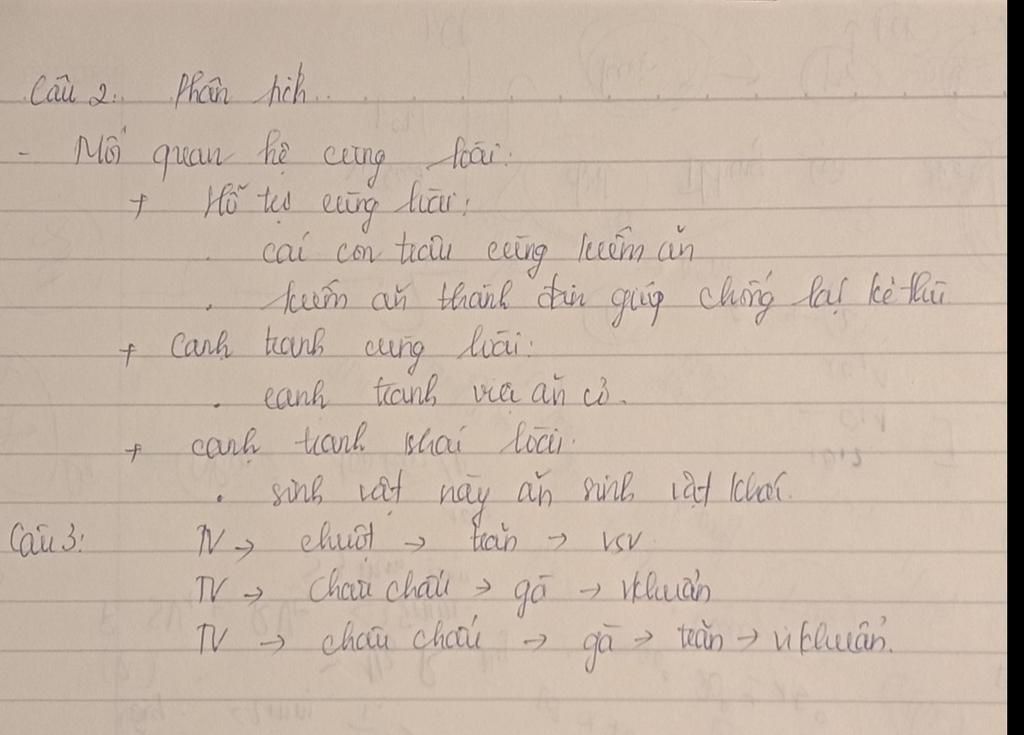 Câu 2: Phân tích.
- Mối quan hệ cùng loài:
+ Hỗ trợ cùng loài:
. các con trâu cùng kiếm ăn
. kiếm ăn thành đàn giúp chống lại kẻ thù
+ Cạnh tranh cùng loài:
. cạnh tranh việc ăn cỏ.
+ cạnh tranh khác loài:
. sinh vật này ăn sinh vật khác.
Câu 3: TV → chuột → trăn → VSV
TV → Châu chấu → gà → vkhuẩn
TV → châu chấu → gà → trăn → vi khuẩn.